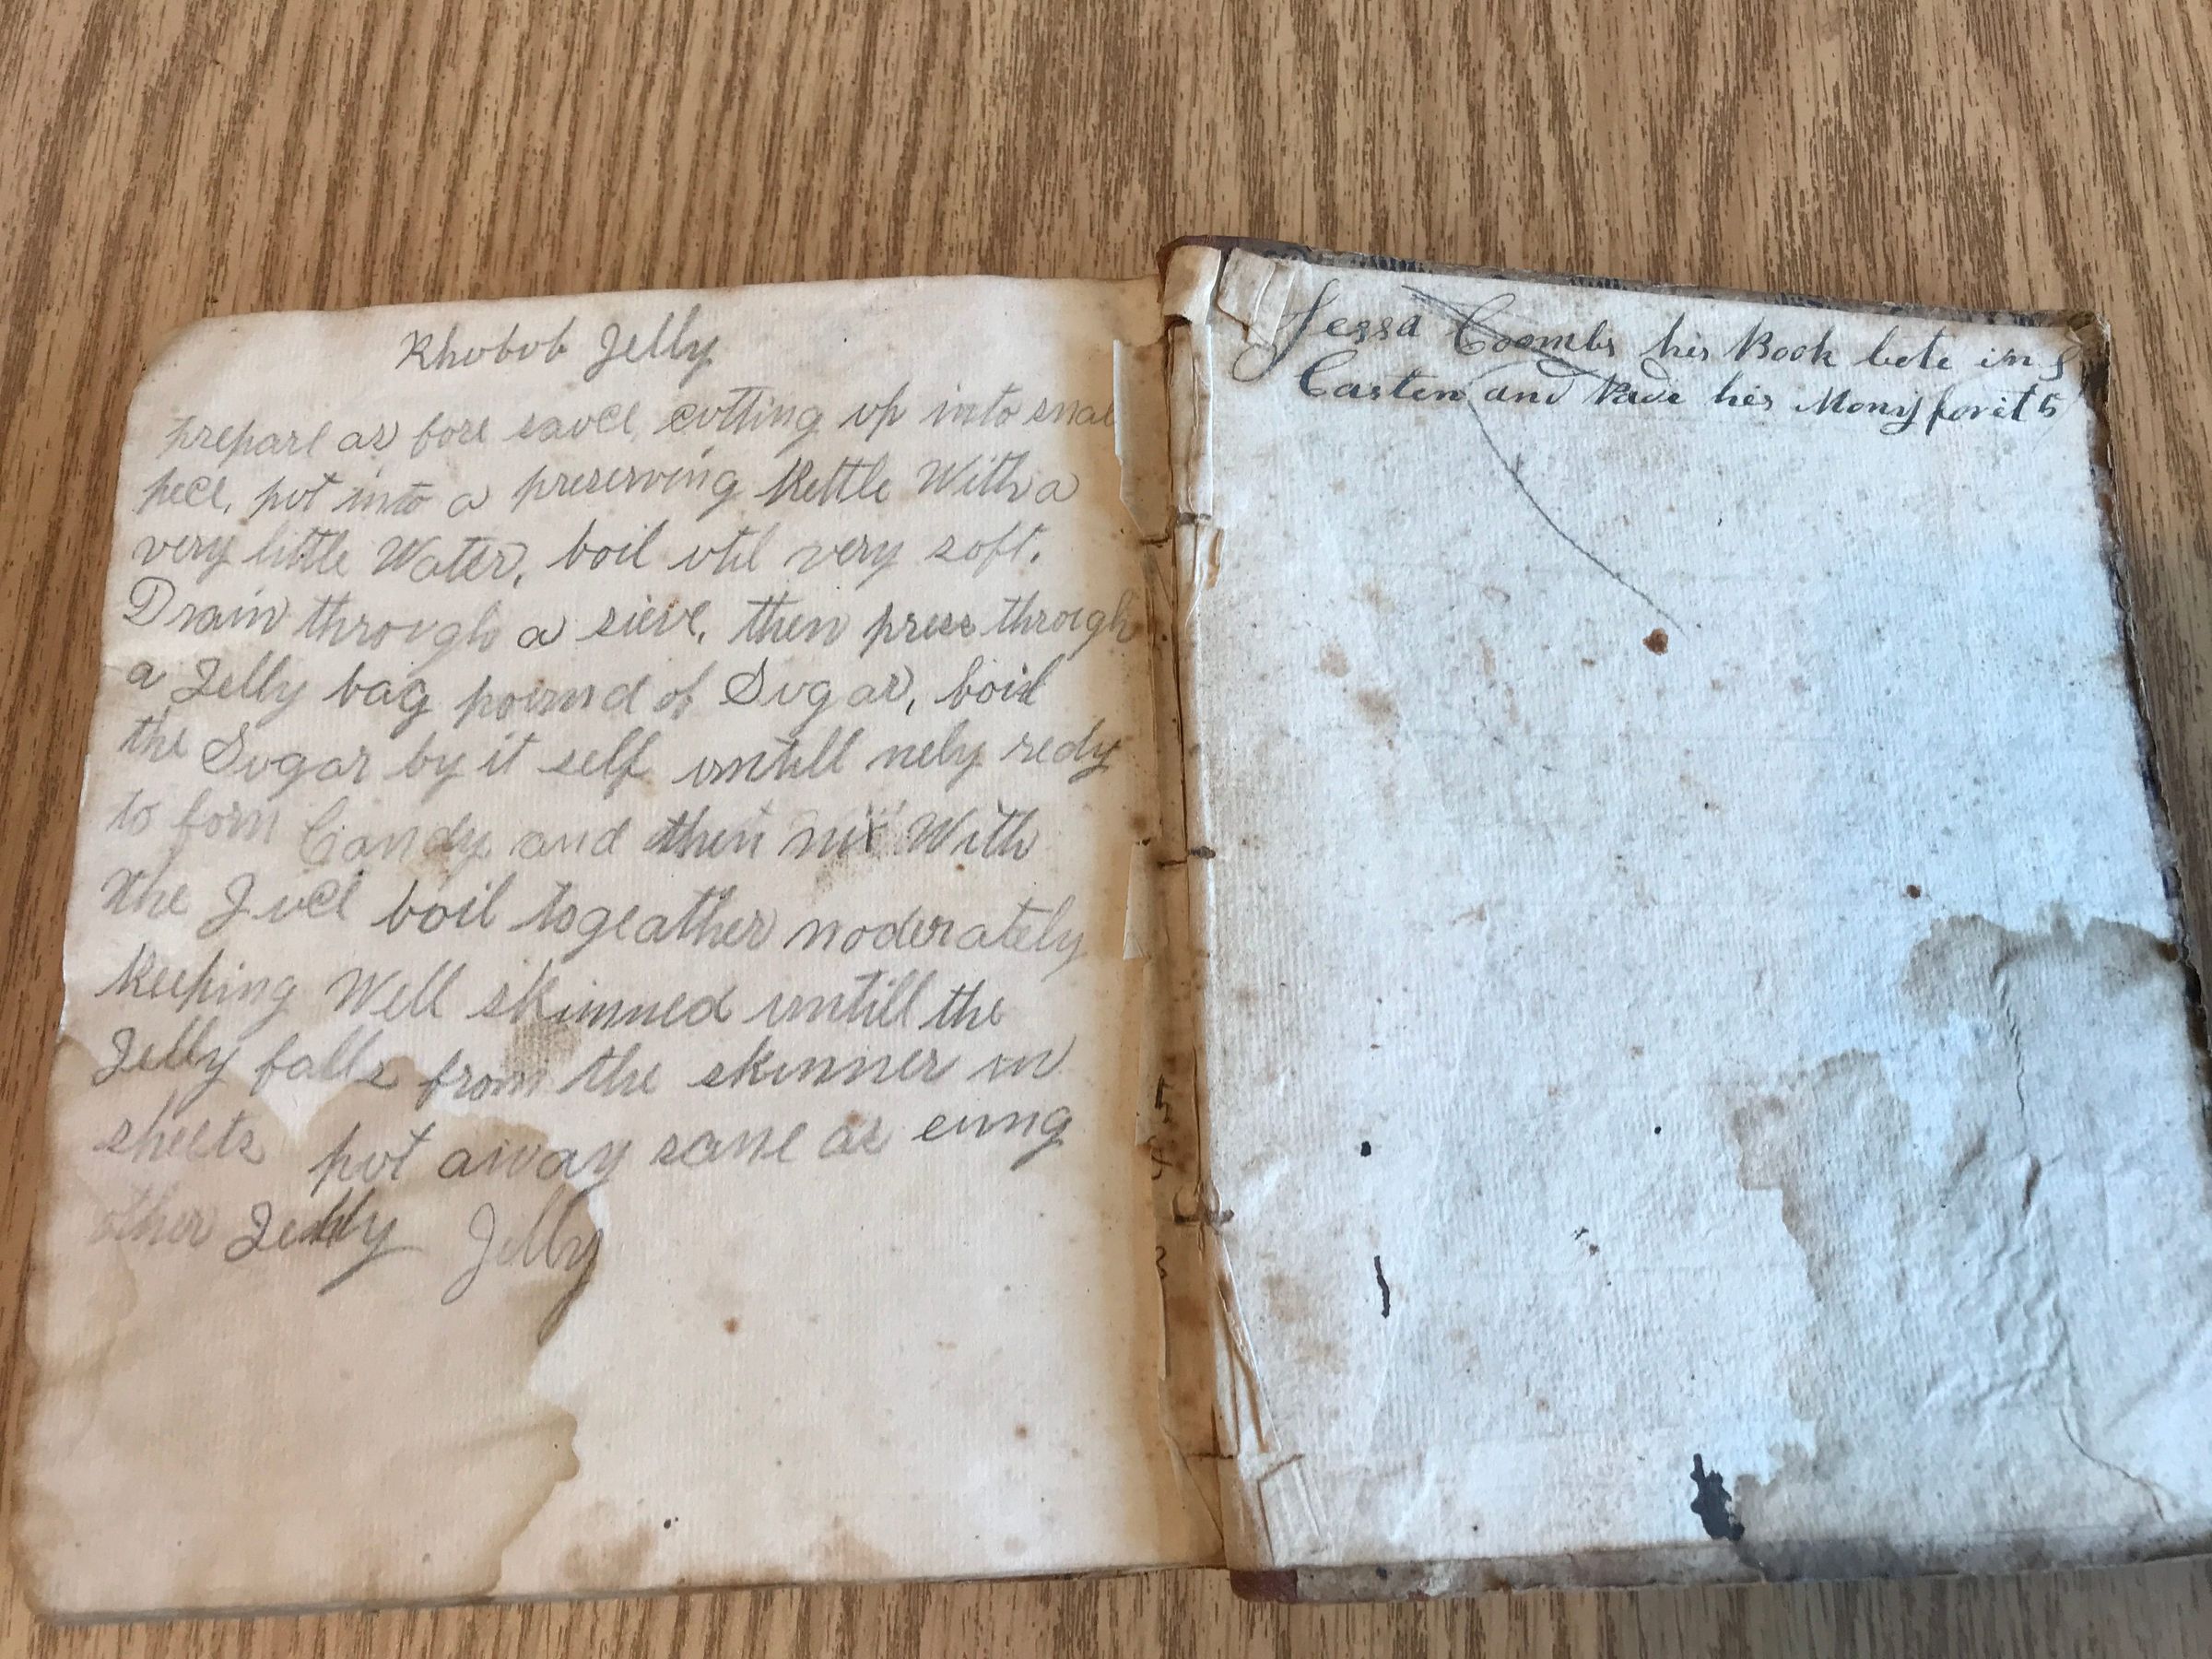 Rhobob Jelly
prepare as fore sauce, cutting up into smal
pece, put into a preserving Kettle With a
very little Water, boil util very soft.
Drain through a sieve, then press through
a Jelly bag pound of Sugar, boil
the Sugar by it self untill nely redy
to form Candy and then mix With
the Juce boil togeather moderately
Keeping Well skimmed untill the
Jelly falls from the skimmer in
sheets put away same as eung
other Jelly Jelly
Jessa Coombs his Book bote in
Casten and Pade his Mony for it 5